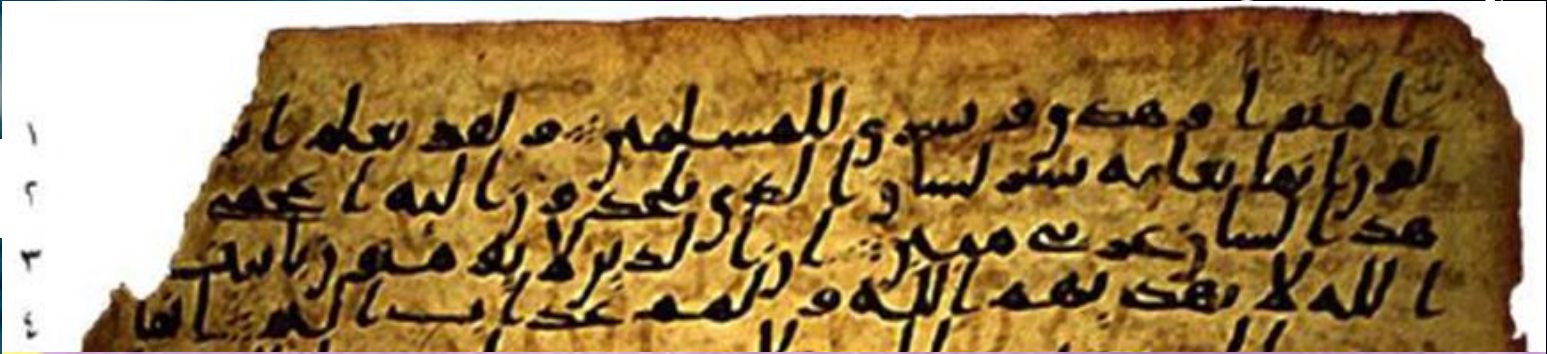 امنوا وهدى وبشرى للمسلمين ولقد نعلم ا ١
لون انما يعلمه بشر لسان الذي يلحدون اليه اعجمي ٢
هذا لسان عربي مبين ان الذين لا يومنون بايت ٣
الله لا يهديهم الله ولهم عذاب اليم انما ٤